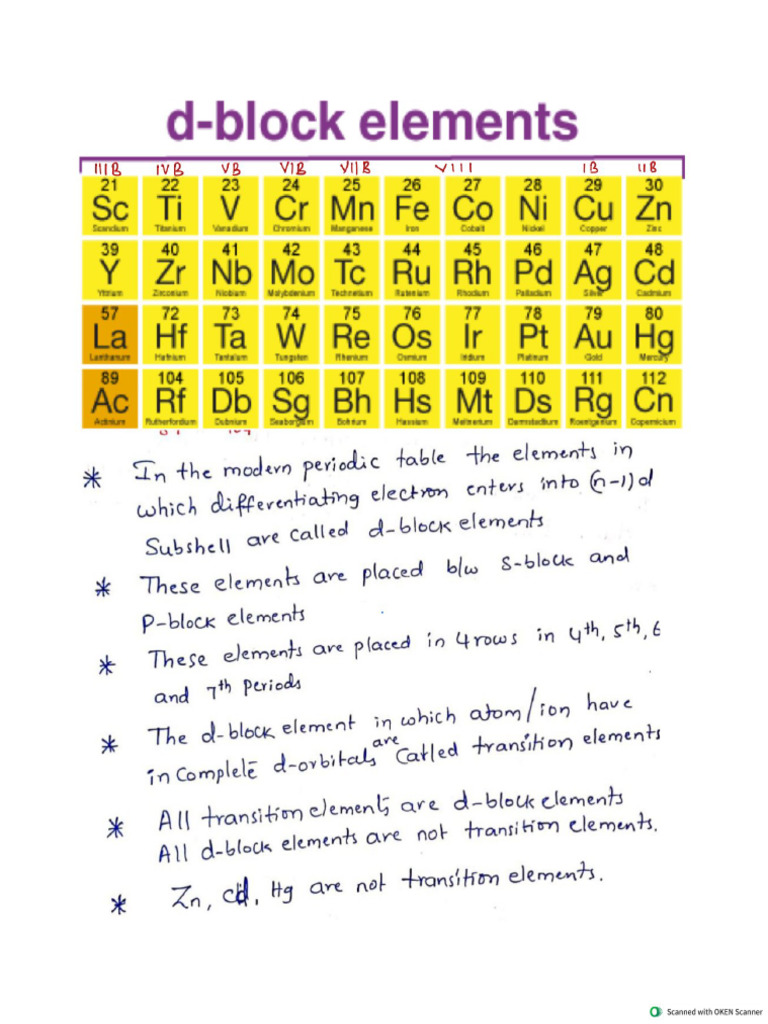 d-block elements
IIIB IVB VB VIB VIIB VIII IB IIB
21 22 23 24 25 26 27 28 29 30
Sc Ti V Cr Mn Fe Co Ni Cu Zn
Scandium Titanium Vanadium Chromium Manganese Iron Cobalt Nickel Copper Zinc
39 40 41 42 43 44 45 46 47 48
Y Zr Nb Mo Tc Ru Rh Pd Ag Cd
Yttrium Zirconium Niobium Molybdenum Technetium Rutenium Rhodium Palladium Silver Cadmium
57 72 73 74 75 76 77 78 79 80
La Hf Ta W Re Os Ir Pt Au Hg
Lanthanum Hafnium Tantalum Tungsten Rhenium Osmium Iridium Platinum Gold Mercury
89 104 105 106 107 108 109 110 111 112
Ac Rf Db Sg Bh Hs Mt Ds Rg Cn
Actinium Rutherfordium Dubnium Seaborgium Bohrium Hassium Meitnerium Darmstadtium Roentgenium Copernicium
* In the modern periodic table the elements in
which differentiating electron enters into (n-1)d
Subshell are called d-block elements
* These elements are placed b/w S-block and
P-block elements
* These elements are placed in 4 rows in 4th, 5th, 6
and 7th Periods
* The d-block element in which atom/ion have
incomplete d-orbitals are called transition elements
* All transition elements are d-block elements
All d-block elements are not transition elements.
* Zn, Cd, Hg are not transition elements.
Scanned with OKEN Scanner